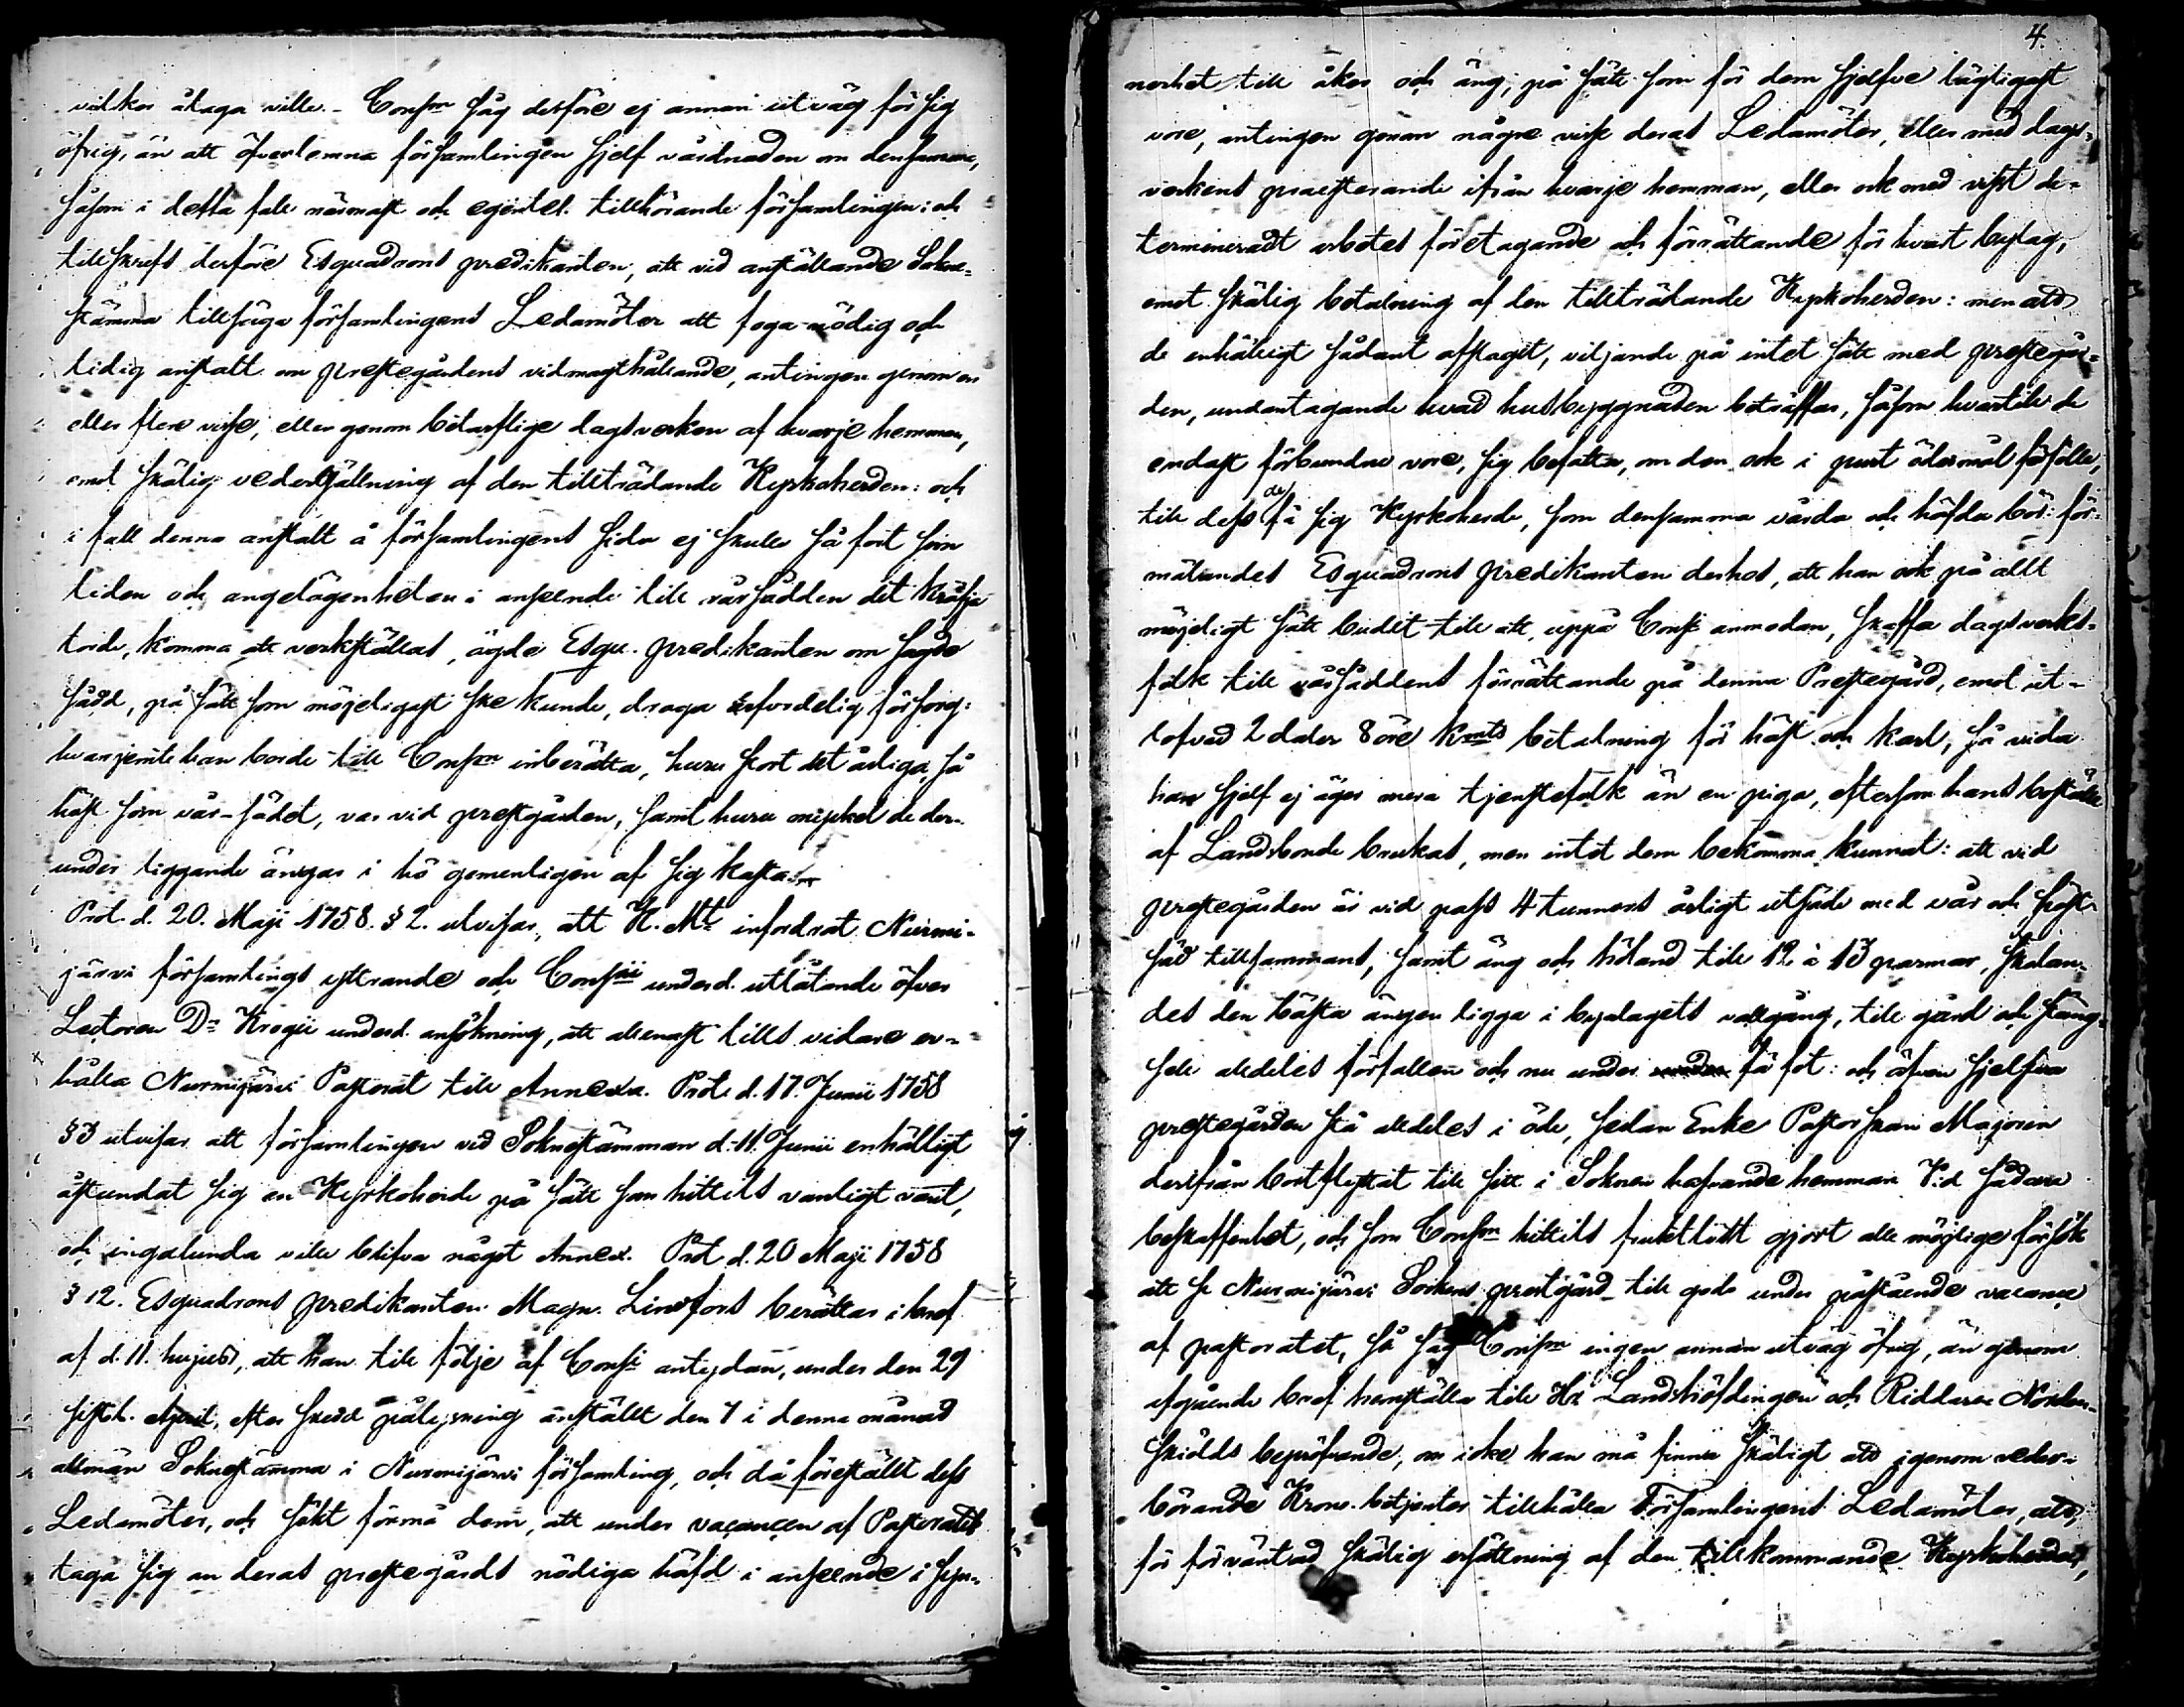 vilkor åtaga ville. – Consm såg derföre ej annan utväg för sig
öfrig, än att öfverlemna församlingen sjelf vårdnaden om densamma,
såsom i detta fall närmast och egentel. tillhörande församlingen: och
tillskrefs derföre Esquadrons predikanten, att vid anställande Sokne-
stämma tillsäga församlingens Ledamöter att foga nödig och
tidig anstalt om prestegårdens vidmagthållande, antingen genom en
eller flere visse, eller genom betarflige dagsverken af hvarje hemman,
emot skälig vedergällning af den tillträdande Kyrkoherden: och
i fall denna anstalt å församlingens sida ej skulle så fort som
tiden och angelägenheten i anseende till vårsådden det kräfja
torde, komma att verkställas, ägde Esqu. predikanten om sagde
sådd, på sätt som möjeligast ske kunde, draga erforderlig försorg:
hvarjemte han borde till Consm inberätta, huru stort det årliga, så
höst som vår-sädet, var vid prestgården, samt huru mycket de der-
under liggande ängar i hö gemenligen af sig kasta.
Prot. d. 20. Maji 1758. § 2. utvisar, att K. Mt infordrat Nurmi-
järvi församlings yttrande och Consii underd. utlåtande öfver
Lectoren Dn Krogii underd. ansökning, att allenast tills vidare er-
hålla Nurmijärvi Pastorat till Annexa. Prot. d. 17. Junii 1758
§ 3 utvisar att församlingen vid Soknestämman d. 11 Junii enhälligt
åstundat sig en Kyrkoherde på sätt som hittils vanligt varit,
och ingalunda ville blifva något Annex. Prot d. 20 Maji 1758
§ 12. Esquadrons predikanten Magn. Lindfors berättar i bref
af d. 11. hujus, att han till följe af Consi antydan, under den 29
sistl. April, efter skedd pålysning anställt den 7 i denna månad
allmän Soknestämma i Nurmijärvi församling, och då föreställt dess
Ledamöter, och sökt förmå dem, att under vacancen af Pastoratet
taga sig an deras prestegårds nödiga häfd i anseende i syn-
4.
nerhet till åker och äng, på sätt som för dem sjelfve lägligast
vore, antingen genom någre visse deras Ledamöter, eller med dags-
verkens praesterande ifrån hvarje hemman, eller ock med visst de-
termineradt arbetes företagande och förrättande för hvart bylag,
emot skälig betalning af den tillträdande Kyrkoherden: men att
de enhälligt sådant afslagit, viljande på intet sätt med prestegår-
den, undantagande hvad husbyggnaden beträffar, såsom hvartill de
endast förbundne vore, sig befatta, om den ock i purt ödesmål förfölle,
till dess de få sig Kyrkoherde, som densamma vårda och häfda bör: för-
mälandes Esquadrons predikanten derhos, att han ock på allt
möjeligt sätt budit till att, uppå Consi anmodan, skaffa dagsverks-
folk till vårsåddens förrättande på denna Prestegård, emot ut-
lofvad 2 daler 8 öre Kmts betalning för häst och karl, så vida
han sjelf ej äger mera tjenstefolk än en piga, eftersom hans boställe
af Landbonde brukas, men intet dem bekomma kunnat: att vid
prestegården är vid pass 4 tunnors årligt utsäde med vår och höst-
säd tillsammans, samt äng och höland till 12 à 13 parmar, skolan-
des den bästa ängen ligga i byalagets vallgång, till gärd och stäng-
sell alldeles förfallen och nu under få fot: och äfven sjelfva
prestegården stå alldeles i öde, sedan Enke Pastorskan Majorin
derifrån bortflyttat till sitt i Soknen hafvande hemman Vid sådana
beskaffenhet, och som Consm hittils fruktlöst gjort alla möjlige försök
att se Nurmijärvi Sokens prestgård till godo under påstående vacance
af pastoratet, så såg Consm ingen annan utväg öfrig, än genom
afgående bref hemställa till Hr Landshöfdingen och Riddaren Norden-
skiölds bepröfvande, om icke han må finna skäligt att igenom veder-
börande Krono betjenter tillhålla Församlingens Ledamöter, att,
för förväntad skälig ersättning af den tillkommande Kyrkoherden,